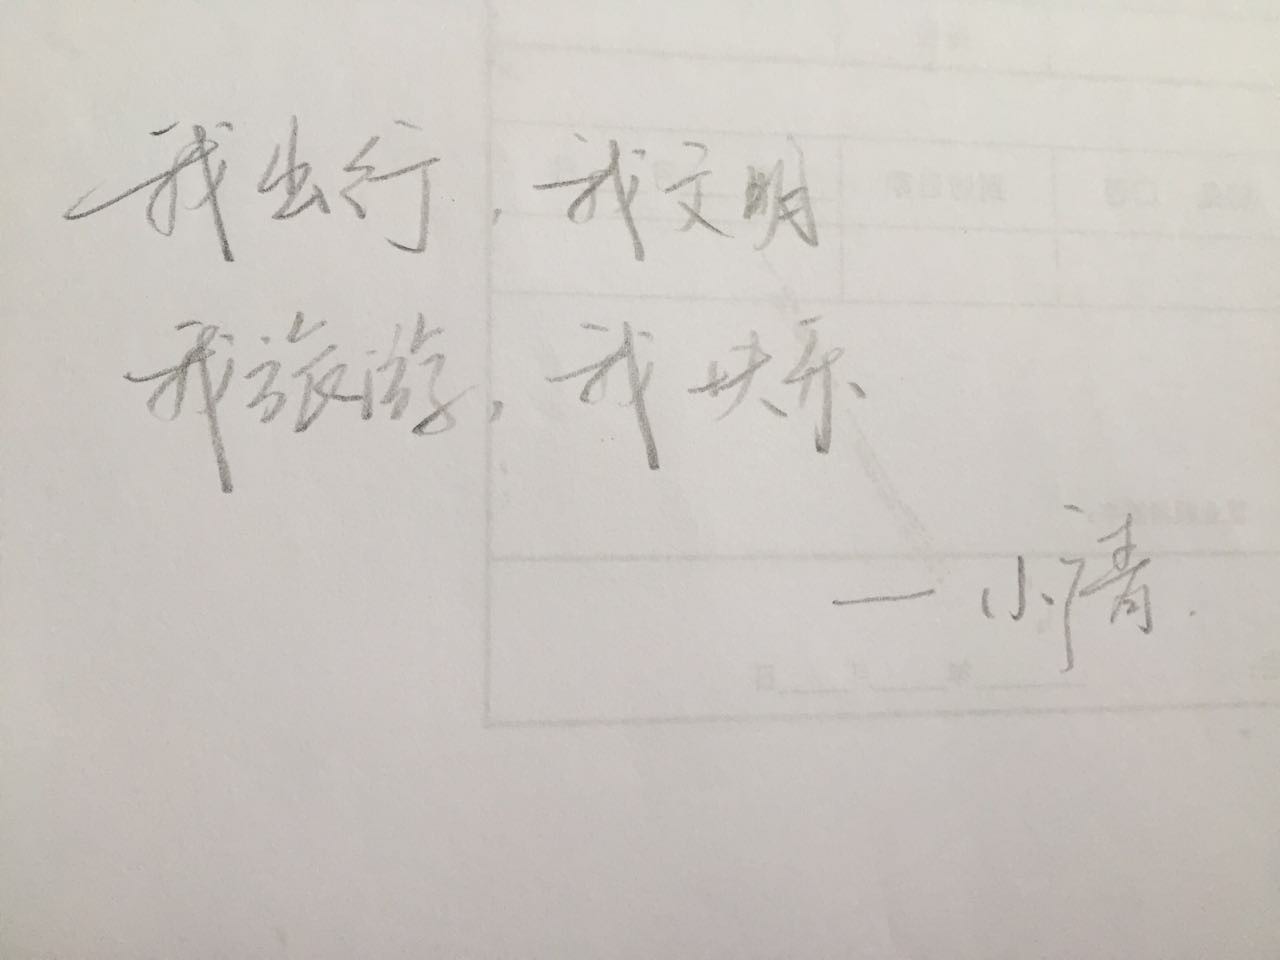 我出行，我文明
我旅游，我快乐
—小清